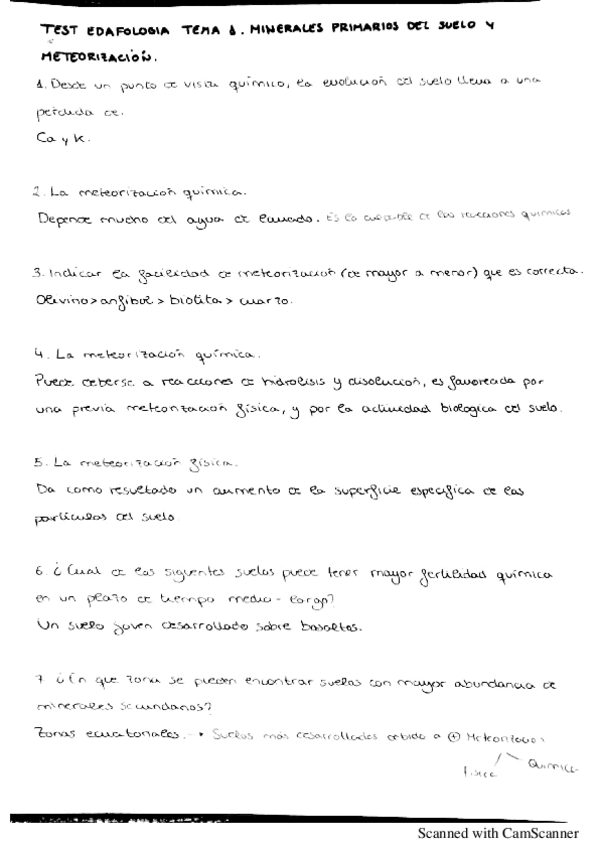 TEST EDAFOLOGIA TEMA 1. MINERALES PRIMARIOS DEL SUELO Y
METEORIZACIÓN.
1. Desde un punto de vista químico, la evolución del suelo lleva a una
perdida de.
Ca y K.
2. La meteorización química.
Depende mucho del agua de lavado. Es la culpable de las reacciones químicas
3. Indicar la facilidad de meteorización (de mayor a menor) que es correcta.
Olivino > anfibol > biotita > cuarzo.
4. La meteorización química.
Puede deberse a reacciones de hidrolisis y disolución, es favorecida por
una previa meteorización física, y por la actividad biologica del suelo.
5. La meteorización física.
Da como resultado un aumento de la superficie especifica de las
partículas del suelo.
6. ¿Cual de los siguentes suelos puede tener mayor fertilidad química
en un plazo de tiempo medio - largo?
Un suelo joven desarrollado sobre basaltos.
7. ¿En que zona se pueden encontrar suelos con mayor abundancia de
minerales secundarios?
Zonas ecuatoriales. → Suelos más desarrollados debido a ⊕ Meteorización
física Química
Scanned with CamScanner